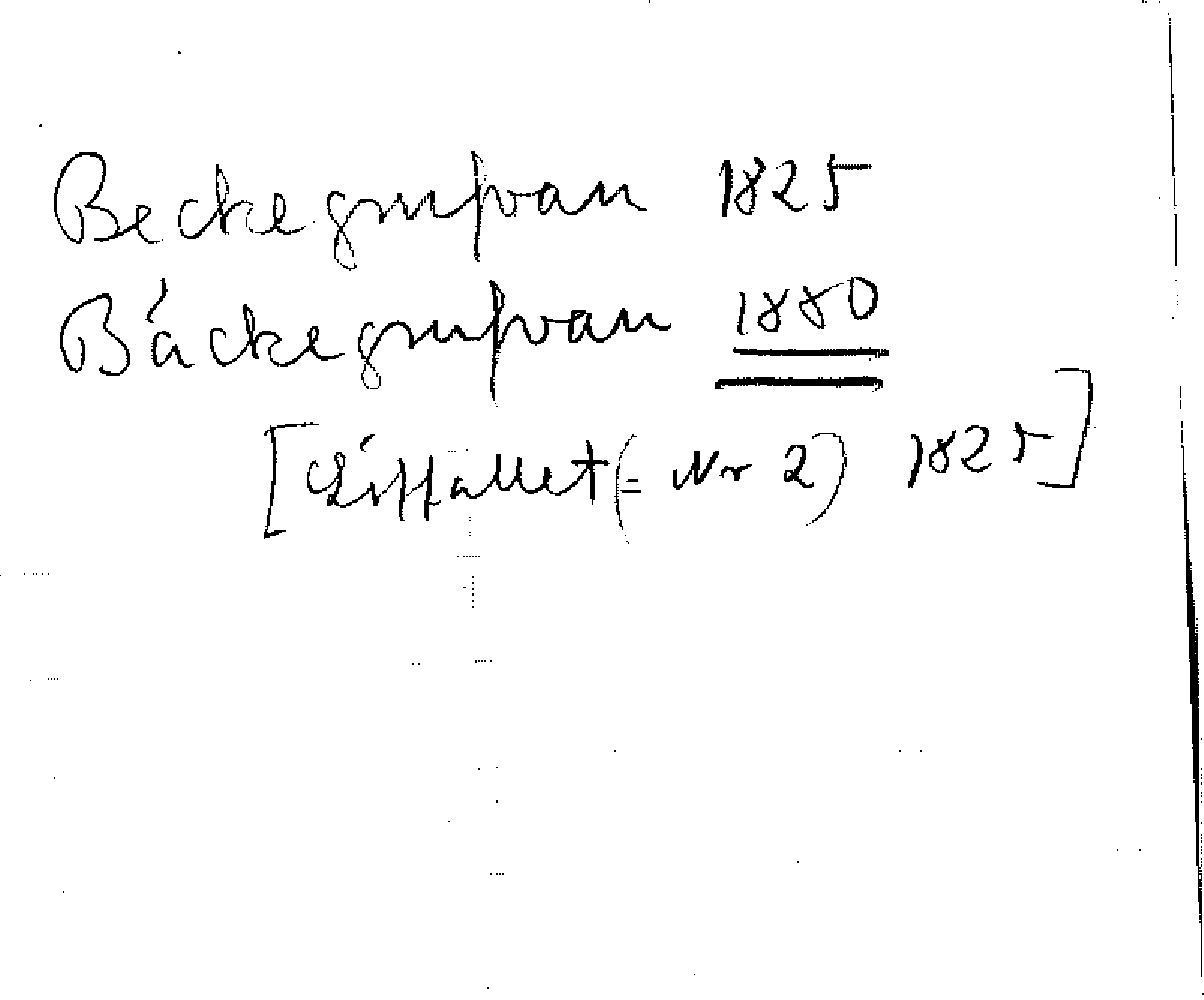 Beckegrufvan 1825
Bäckegrufvan 1880
[Löffallet (= Nr 2) 1825]